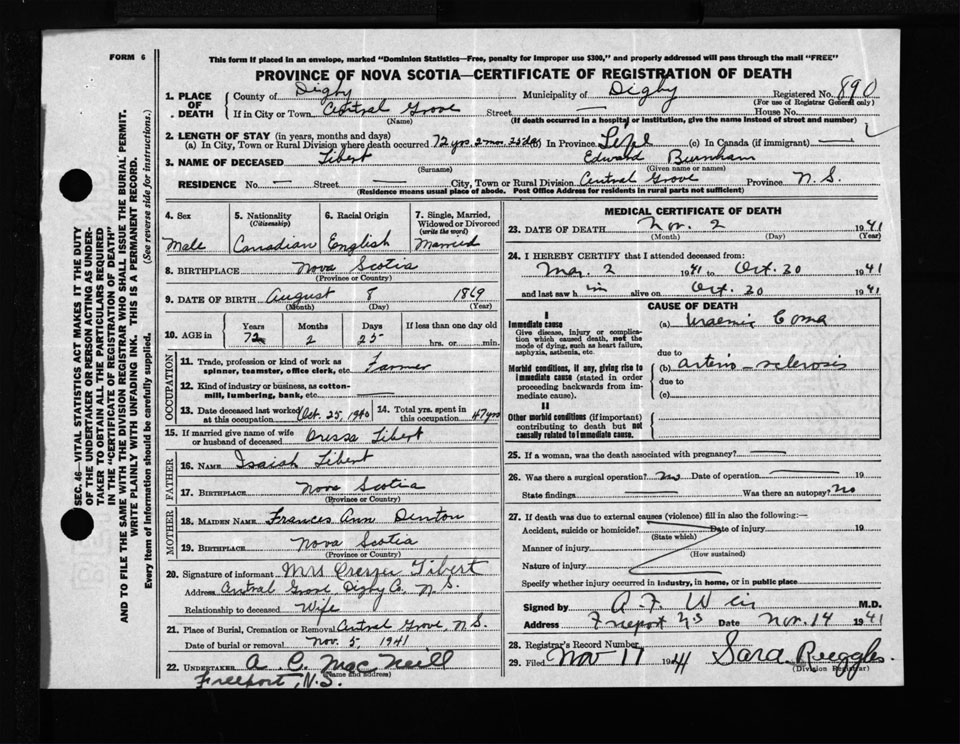 FORM 6
This form if placed in an envelope, marked "Dominion Statistics—Free, penalty for improper use $300," and properly addressed will pass through the mail "FREE"
PROVINCE OF NOVA SCOTIA—CERTIFICATE OF REGISTRATION OF DEATH
1. PLACE OF DEATH { County of Digby Municipality of Digby Registered No. 890
(For use of Registrar General only)
If in City or Town Central Grove Street — House No.
(Name) (If death occurred in a hospital or institution, give the name instead of street and number)
2. LENGTH OF STAY (in years, months and days)
(a) In City, Town or Rural Division where death occurred 72 yrs. 2 mos. 25 dys (b) In Province Life (c) In Canada (if immigrant) —
3. NAME OF DECEASED Tibert Edward Burnham
(Surname) (Given name or names)
RESIDENCE No. — Street — City, Town or Rural Division Central Grove Province N.S.
(Residence means usual place of abode. Post Office Address for residents in rural parts not sufficient)
4. Sex
Male
5. Nationality
(Citizenship)
Canadian
6. Racial Origin
English
7. Single, Married, Widowed or Divorced
(write the word)
Married
8. BIRTHPLACE Nova Scotia
(Province or Country)
9. DATE OF BIRTH August 8 1869
(Month) (Day) (Year)
10. AGE in { Years Months Days If less than one day old
72 2 25 hrs. or min.
OCCUPATION
11. Trade, profession or kind of work as spinner, teamster, office clerk, etc. Farmer
12. Kind of industry or business, as cotton-mill, lumbering, bank, etc. —
13. Date deceased last worked at this occupation Oct. 25, 1940
14. Total yrs. spent in this occupation 47 yrs
15. If married give name of wife or husband of deceased Tibert
FATHER
16. NAME Isaiah Tibert
17. BIRTHPLACE Nova Scotia
(Province or Country)
MOTHER
18. MAIDEN NAME Frances Ann Denton
19. BIRTHPLACE Nova Scotia
(Province or Country)
20. Signature of informant Mrs Tibert
Address Central Grove Digby Co. N.S.
Relationship to deceased Wife
21. Place of Burial, Cremation or Removal Central Grove, N.S.
Date of burial or removal Nov. 5, 1941
22. UNDERTAKER A. C. MacNeill
(Name and address)
Freeport, N.S.
MEDICAL CERTIFICATE OF DEATH
23. DATE OF DEATH Nov. 2 1941
(Month) (Day) (Year)
24. I HEREBY CERTIFY that I attended deceased from:
Mar. 2 1941 to Oct. 30 1941
and last saw him alive on Oct. 30 1941
CAUSE OF DEATH
I
Immediate cause (a) Uraemic Coma
Give disease, injury or complication which caused death, not the mode of dying, such as heart failure, asphyxia, asthenia, etc.
due to
Morbid conditions, if any, giving rise to immediate cause (stated in order proceeding backwards from immediate cause). (b) arterio-sclerosis
due to
(c)
II
Other morbid conditions (if important) contributing to death but not causally related to immediate cause.
25. If a woman, was the death associated with pregnancy? —
26. Was there a surgical operation? No Date of operation — 19
State findings — Was there an autopsy? no
27. If death was due to external causes (violence) fill in also the following:—
Accident, suicide or homicide? Date of injury 19
(State which)
Manner of injury
(How sustained)
Nature of injury
Specify whether injury occurred in industry, in home, or in public place
Signed by A. F. Weir M.D.
Address Freeport N.S Date Nov. 14 1941
28. Registrar's Record Number
29. Filed Nov 17 1941 Sara Ruggles
(Division Registrar)
SEC. 46—VITAL STATISTICS ACT MAKES IT THE DUTY
OF THE UNDERTAKER OR PERSON ACTING AS UNDER-
TAKER TO OBTAIN ALL THE PARTICULARS REQUIRED
IN THE "CERTIFICATE OF REGISTRATION OF DEATH"
AND TO FILE THE SAME WITH THE DIVISION REGISTRAR WHO SHALL ISSUE THE BURIAL PERMIT.
WRITE PLAINLY WITH UNFADING INK. THIS IS A PERMANENT RECORD.
Every item of information should be carefully supplied. (See reverse side for instructions.)